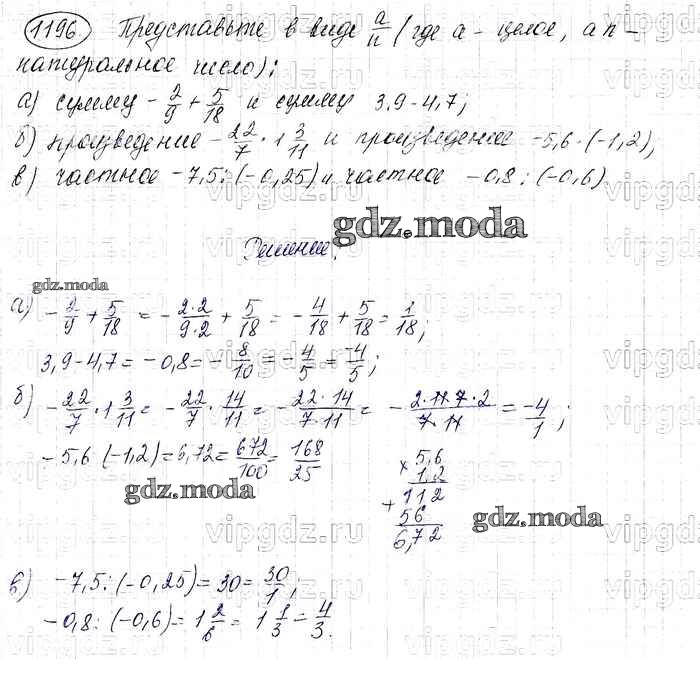 1196 Представьте в виде a/n (где a - целое, а n -
натуральное число):
а) сумму -2/9 + 5/18 и сумму 3,9-4,7;
б) произведение -22/7 · 1 3/11 и произведение -5,6·(-1,2);
в) частное -7,5:(-0,25) и частное -0,8:(-0,6)
gdz.moda
Решение.
gdz.moda
а) -2/9 + 5/18 = -2·2/9·2 + 5/18 = -4/18 + 5/18 = 1/18;
3,9-4,7=-0,8=-8/10=-4/5=-4/5;
б) -22/7 · 1 3/11 = -22/7 · 14/11 = -22·14/7·11 = -2·11·7·2/7·11 = -4/1;
-5,6 (-1,2)=6,72=672/100=168/25
×5,6
1,2
+112
56
6,72
gdz.moda
gdz.moda
в) -7,5:(-0,25)=30=30/1;
-0,8:(-0,6)=1 2/6=1 1/3=4/3.